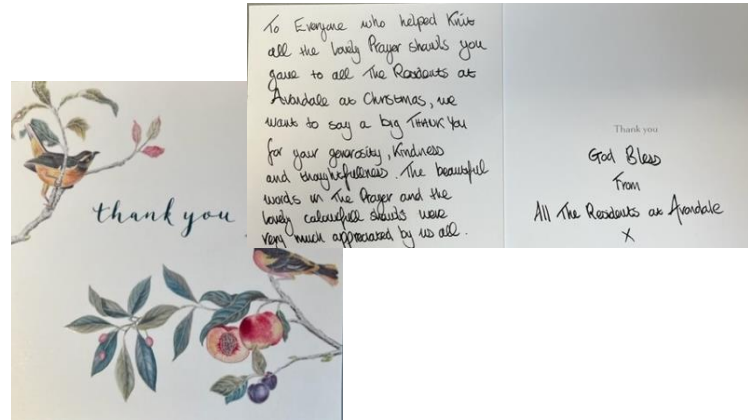 thank you
To Everyone who helped Knit
all the lovely Prayer shawls you
gave to all The Residents at
Avondale at Christmas, we
want to say a big THANK YOU
for your generosity, Kindness
and thoughtfullness. The beautiful
words in The Prayer and the
lovely colourfull shawls were
very much appreciated by us all.
Thank you
God Bless
From
All The Residents at Avondale
X